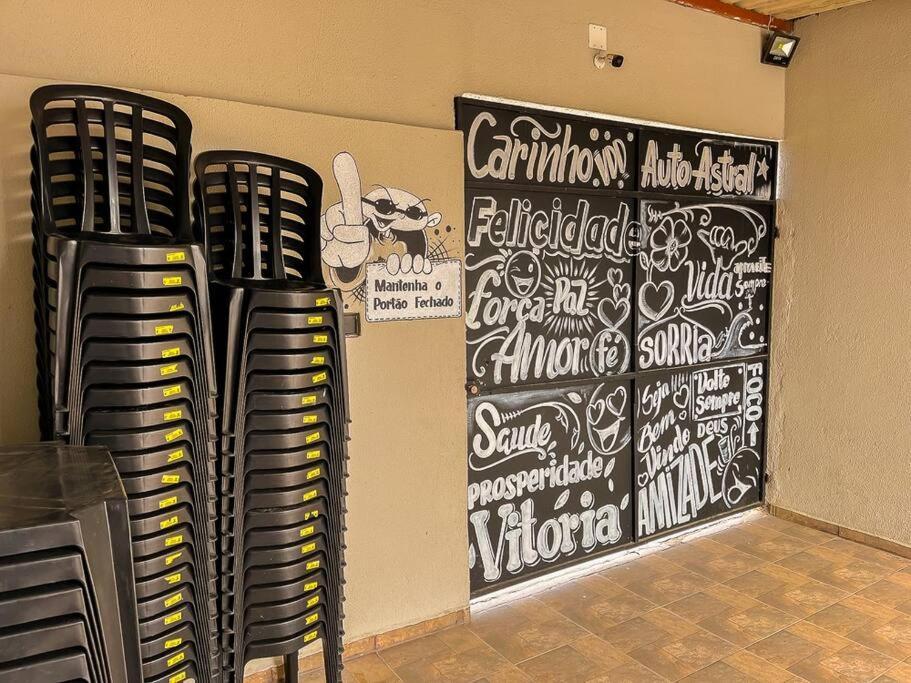 Mantenha o
Portão Fechado
Carinho
Auto Astral
Felicidade
força
Paz
Amor
fé
Vida
aproveite
sempre
SORRIa
Saude
prosperidade
Vitória
Seja
Bem
Vindo
Volte
Sempre
DEUS
AMIZADE
FOCO